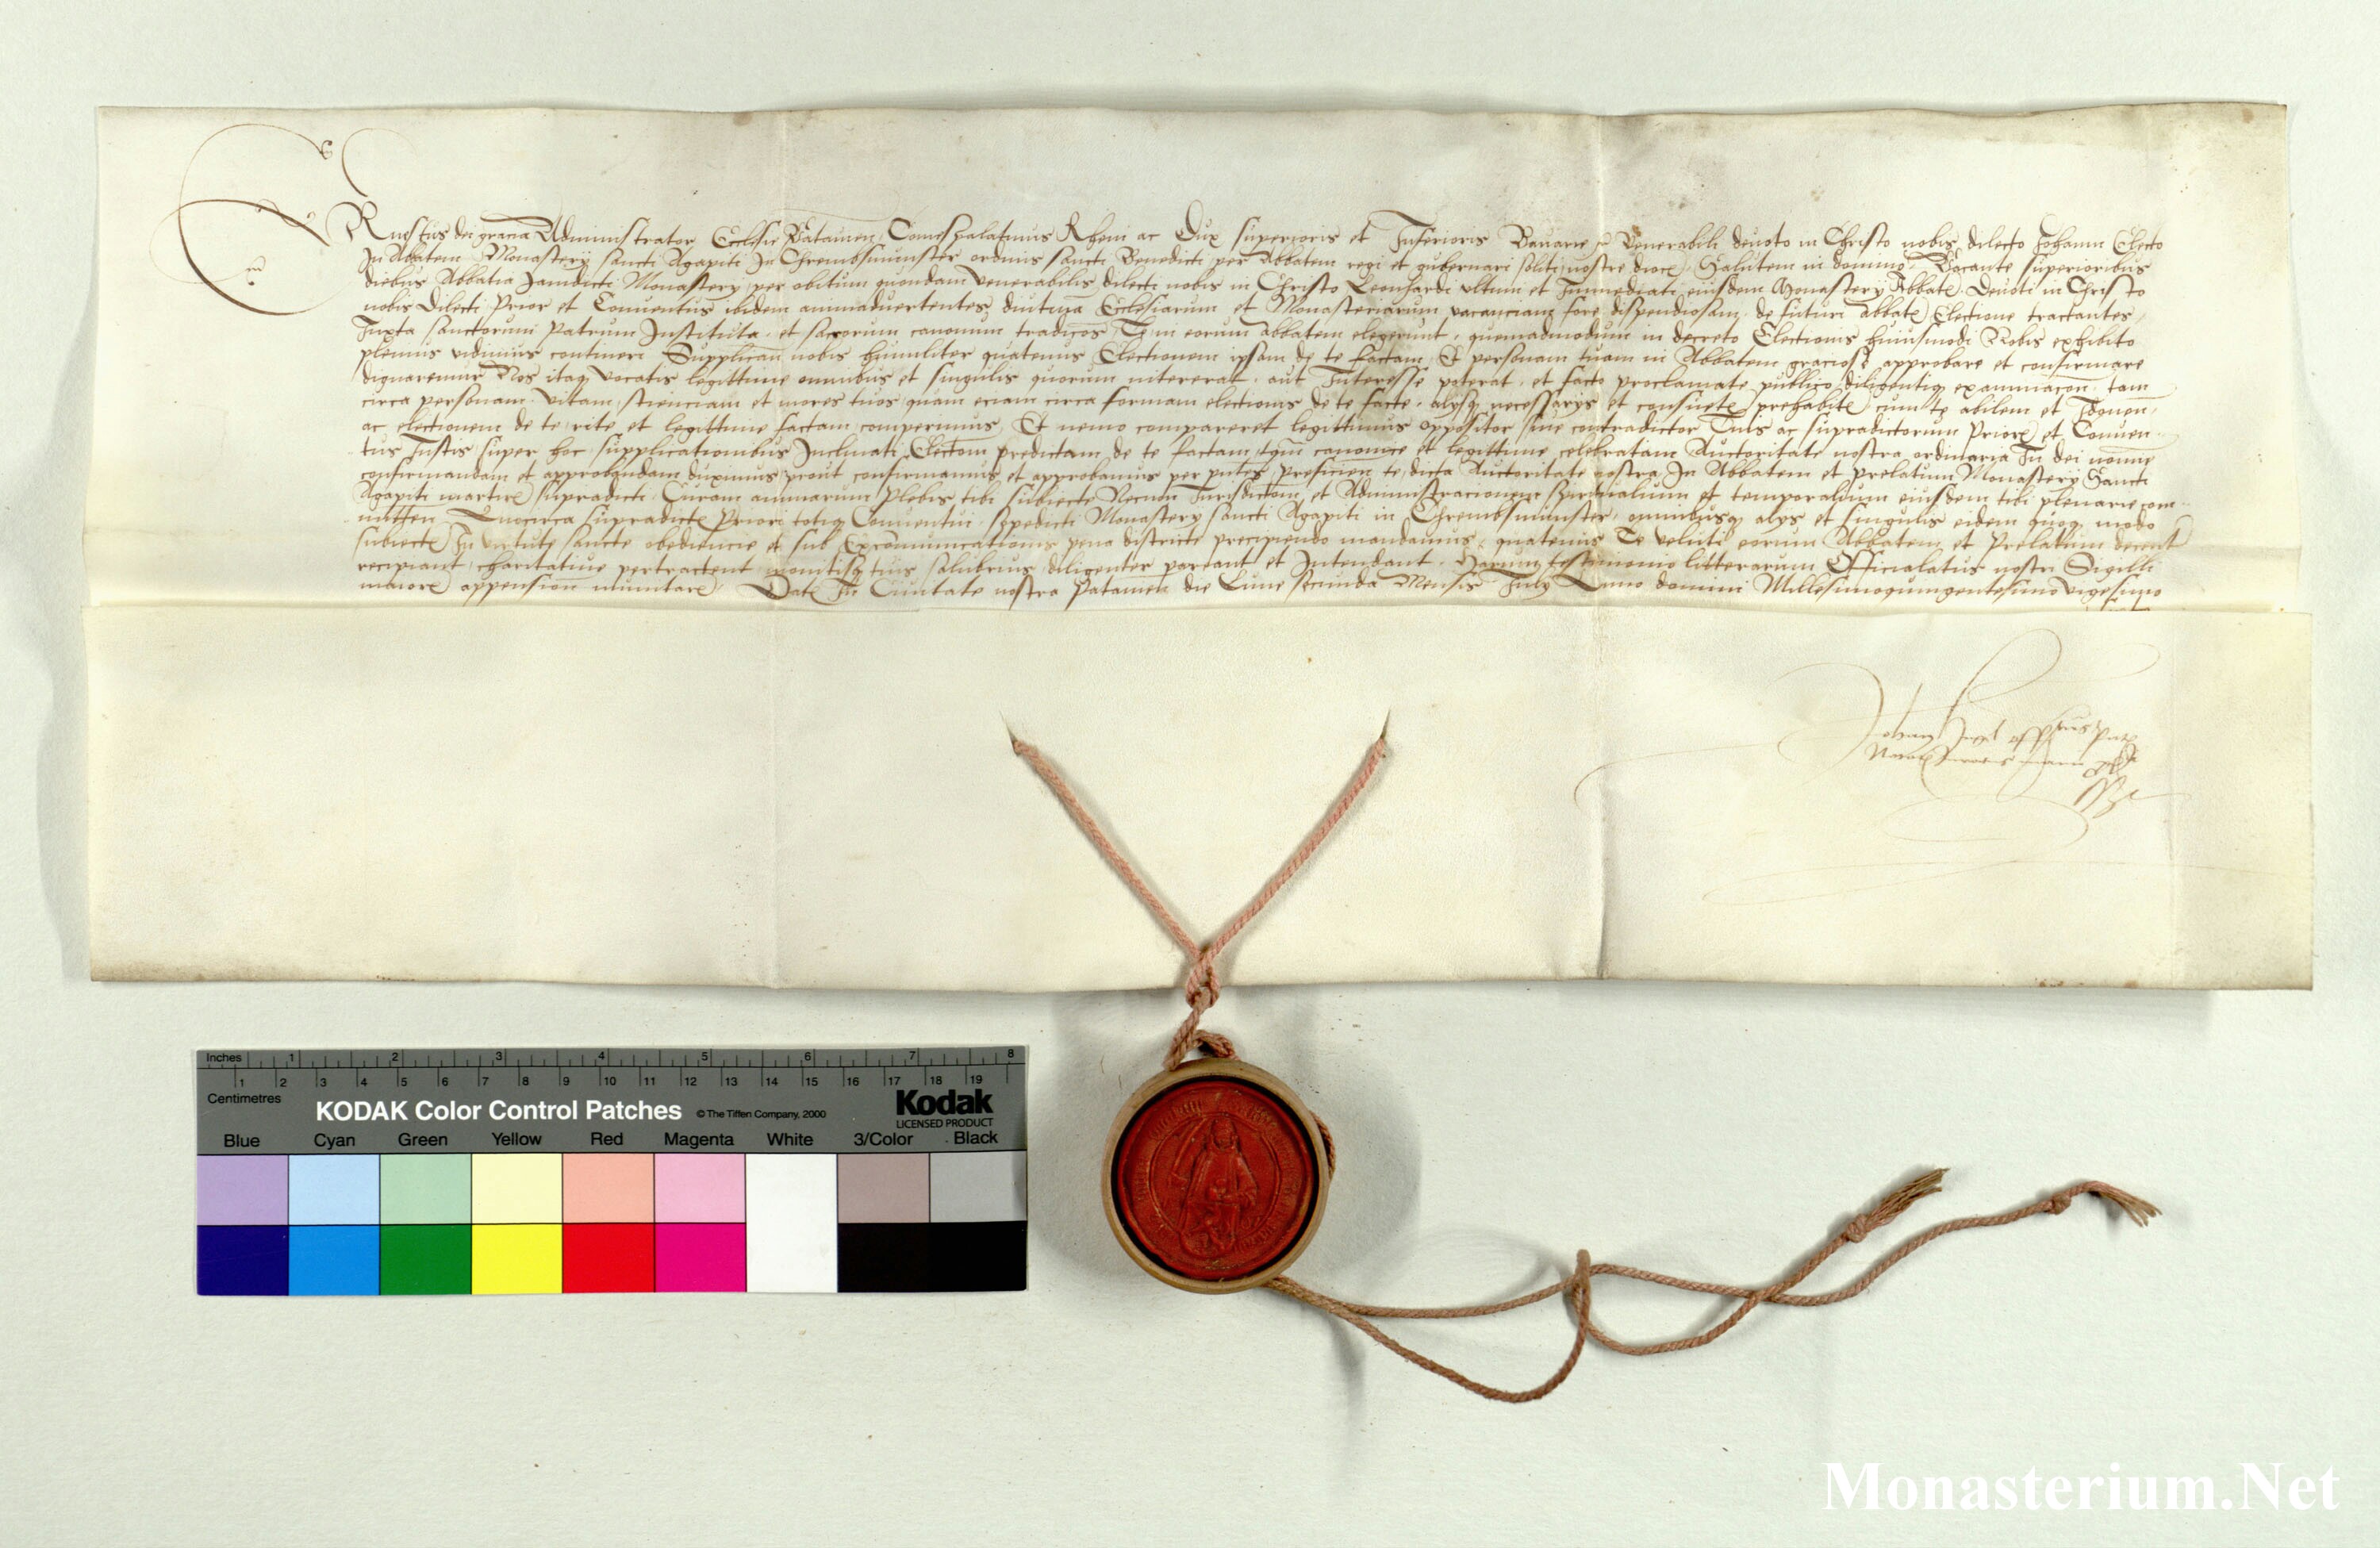 ERnestus dei gracia Administrator Ecclesie Patauien Comespalatinus Rheni ac Dux superioris et Inferioris Bauarie Venerabili deuoto in Christo nobis dilecto Johanni Electo
In Abbatem Monasterij sancti Agapiti In Chrembsmunster ordinis sancti Benedicti per Abbatem regi et gubernari soliti nostre dioc Salutem in domino Vacante superioribus
diebus Abbatia Jamdicti Monastery per obitum quondam Venerabilis dilecti nobis in Christo Leonhardi vltimi et Immediati eiusdem Monastery Abbat Deuoti in Christo
nobis Dilecti Prior et Conuentus ibidem animaduertentes diutina Ecclesiarum et Monasteriarum vacanciam fore dispendiosam de futuri abbat Electione tractantes
Juxta sanctorum Patrum Instituta et sacrorum canonum tradicos Te in eorum abbatem elegerunt quemadmodum in decreto Electionis huiusmodi Nobis exhibito
plenius vidimus contineri Supplican nobis humiliter quatenus Electionem ipsam de te factam Et personam tuam in Abbatem graciose approbare et confirmare
dignaremur Nos itaq vocatis legittime omnibus et singulis quorum intererat aut Interesse poterat et facto proclamate publico diligentiq examinacon tam
circa personam vitam scienciam et mores tuos quam eciam circa formam electionis de te facte alysq necessarys et consuet prehabit cum te abilem et Idoneu
ac electionem de te rite et legittime factam comperimus Et nemo compareret legittimus oppositor siue contradictor Tuis ac supradictorum Prior et Conuen
tus Justis super hoc supplicationibus Inclinati Electom predictam de te factam tqm canonice et legittime celebratam Auctoritate nostra ordinaria In dei nomine
confirmandam et approbandam duximus prout confirmamus et approbamus per pntes preficien te dicta Auctoritate nostra In Abbatem et prelatum Monastery Sancti
Agapiti martir supradicti Curam animarum Plebis tibi subiecte Necnon Jurisdictom et Administracionem spiritualium et temporalium eiusdem tibi plenarie com
mitten Quocirca supradict Priori totiq Conuentui spedicti Monastery sancti Agapiti in Chrembsmunster omnibusq alys et singulis eidem quoq modo
subiect In virtute sancte obediencie et sub Excommunicationis pena districte precipiendo mandamus quatenus Te veluti eorum Abbatem et Prelatum decent
recipiant charitatiue pertractent monitisq tuis salubrius diligenter pareant et Intendant Harum testimonio litterarum Officialatus nostri Sigilli
maior appension munitar Dat In Ciuitate nostra Patauien die Lune secunda Mensis July Anno domini Millesimoquingentesimo vigesimo
Inches 1 2 3 4 5 6 7 8
1 2 3 4 5 6 7 8 9 10 11 12 13 14 15 16 17 18 19
Centimetres
KODAK Color Control Patches © The Tiffen Company, 2000 Kodak
LICENSED PRODUCT
Blue Cyan Green Yellow Red Magenta White 3/Color Black
Monasterium.Net